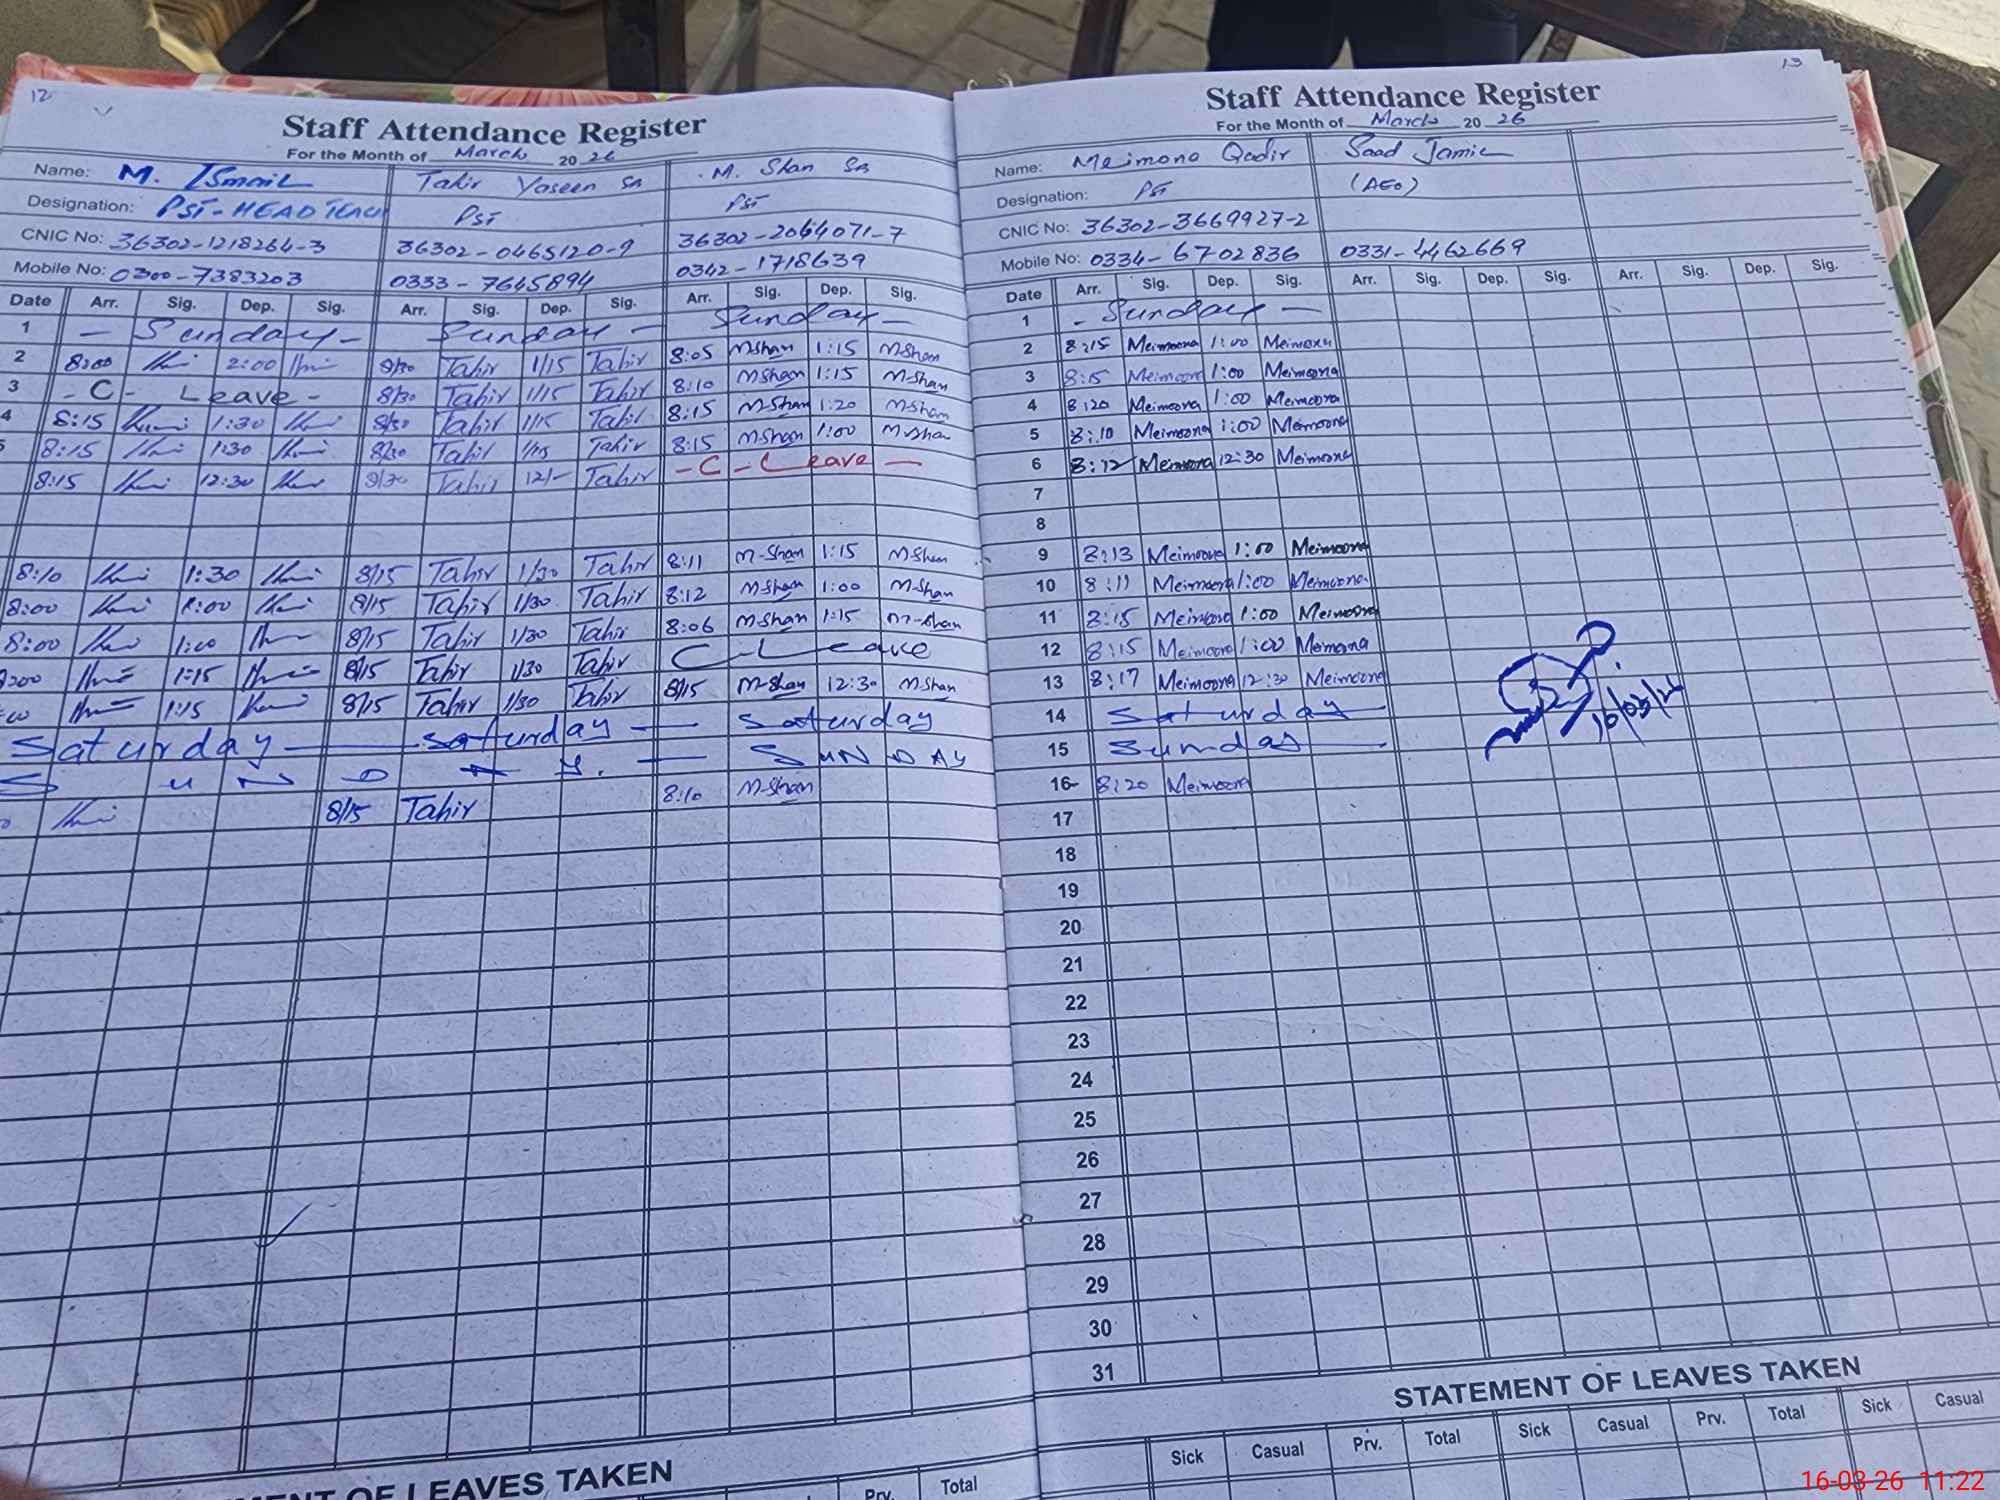 12
Staff Attendance Register
For the Month of March 20 26
Name: M. Ismail Tahir Yaseen Sn M. Shan Sn
Designation: PST-HEAD TEACH PST PST
CNIC No: 36302-1218264-3 36302-0465120-9 36302-2064071-7
Mobile No: 0300-7383203 0333-7645894 0342-1718639
Date Arr. Sig. Dep. Sig. Arr. Sig. Dep. Sig. Arr. Sig. Dep. Sig.
1 - Sunday - Sunday - Sunday -
2 8:00 2:00 8/30 Tahir 1/15 Tahir 8:05 M-Shan 1:15 M-Shan
3 - C - Leave - 8/30 Tahir 1/15 Tahir 8:10 M-Shan 1:15 M-Shan
4 8:15 1:30 8/30 Tahir 1/15 Tahir 8:15 M-Shan 1:20 M-Shan
5 8:15 1:30 8/30 Tahir 1/15 Tahir 8:15 M-Shan 1:00 M-Shan
8:15 12:30 8/30 Tahir 12/- Tahir - C - Leave -
8:10 1:30 8/15 Tahir 1/30 Tahir 8:11 M-Shan 1:15 M-Shan
8:00 1:00 8/15 Tahir 1/30 Tahir 8:12 M-Shan 1:00 M-Shan
8:00 1:00 8/15 Tahir 1/30 Tahir 8:06 M-Shan 1:15 M-Shan
1:15 8/15 Tahir 1/30 Tahir C-Leave
1:15 8/15 Tahir 1/30 Tahir 8/15 M-Shan 12:30 M-Shan
Saturday - Saturday - Saturday
S U N D A Y. - SUNDAY
8/15 Tahir 8:10 M-Shan
OF LEAVES TAKEN
Prv. Total
13
Staff Attendance Register
For the Month of March 20 26
Name: Meimona Qadir Saad Jamil
Designation: PST (AEO)
CNIC No: 36302-3669927-2
Mobile No: 0334-6702836 0331-4462669
Date Arr. Sig. Dep. Sig. Arr. Sig. Dep. Sig. Arr. Sig. Dep. Sig.
1 - Sunday -
2 8:15 Meimoona 1:00 Meimoona
3 8:15 Meimoona 1:00 Meimoona
4 8:20 Meimoona 1:00 Meimoona
5 8:10 Meimoona 1:00 Meimoona
6 8:12 Meimoona 12:30 Meimoona
7
8
9 8:13 Meimoona 1:00 Meimoona
10 8:11 Meimoona 1:00 Meimoona
11 8:15 Meimoona 1:00 Meimoona
12 8:15 Meimoona 1:00 Meimoona
13 8:17 Meimoona 12:30 Meimoona
14 Saturday
15 Sunday
16 8:20 Meimoona
16/03/26
17
18
19
20
21
22
23
24
25
26
27
28
29
30
31
STATEMENT OF LEAVES TAKEN
Sick Casual Prv. Total Sick Casual Prv. Total Sick Casual
16-03-26 11:22